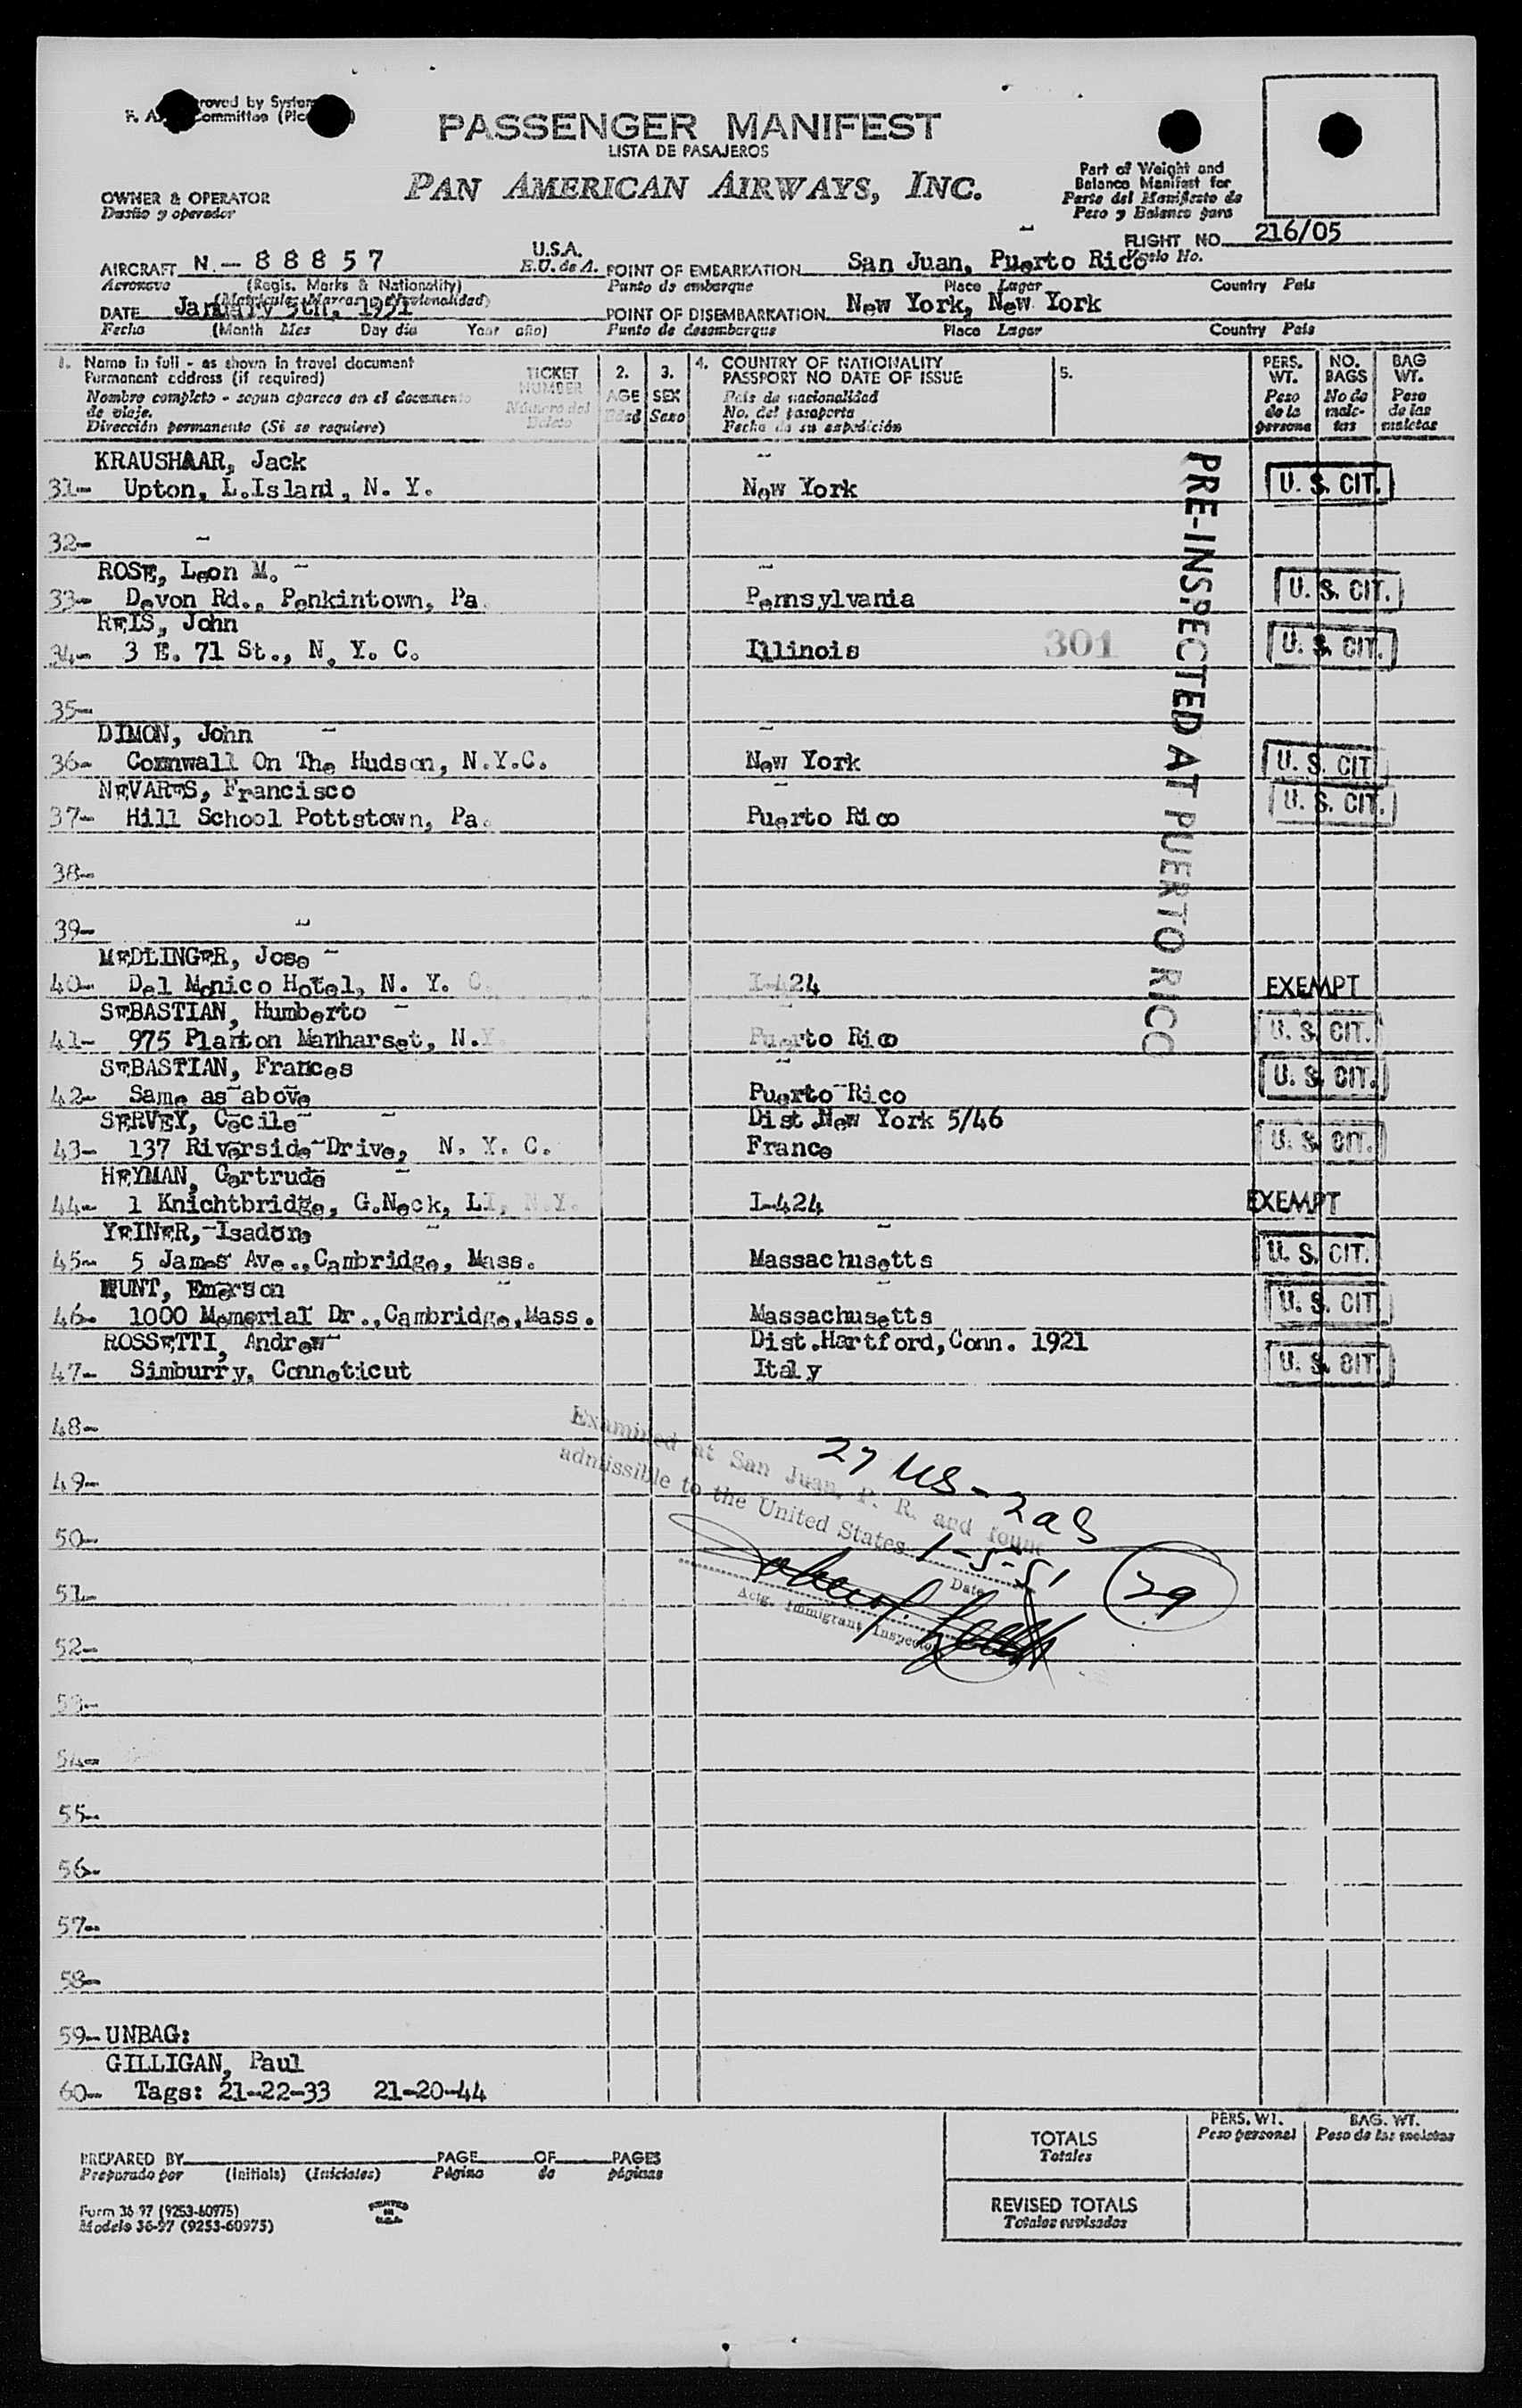 roved by System
F. A. Committee
PASSENGER MANIFEST
LISTA DE PASAJEROS
PAN AMERICAN AIRWAYS, INC.
OWNER & OPERATOR
Dueño y operador
Part of Weight and
Balance Manifest for
Parte del Manifiesto de
Peso y Balance para
FLIGHT NO. 216/05
Vuelo No.
AIRCRAFT N.- 88857 U.S.A.
E.U. de A.
Aeronave (Regis. Marks & Nationality)
(Matricula: Marcas y Nacionalidad)
POINT OF EMBARKATION San Juan, Puerto Rico
Punto de embarque Place Lugar Country País
DATE January 5th, 1951
Fecha (Month Mes Day dia Year año)
POINT OF DISEMBARKATION New York, New York
Punto de desembarque Place Lugar Country País
1. Name in full - as shown in travel document
Permanent address (if required)
Nombre completo - segun aparece en el documento
de viaje.
Dirección permanente (Si se requiere)
TICKET
NUMBER
Número del
Boleto
2.
AGE
Edad
3.
SEX
Sexo
4. COUNTRY OF NATIONALITY
PASSPORT NO DATE OF ISSUE
País de nacionalidad
No. del pasaporte
Fecha de su expedición
5.
PERS.
WT.
Peso
de la
persona
NO.
BAGS
No de
male-
tas
BAG
WT.
Peso
de las
maletas
KRAUSHAAR, Jack
31- Upton, L.Island, N. Y. New York U. S. CIT.
32-
ROSE, Leon M.
33- Devon Rd., Penkintown, Pa. Pennsylvania U. S. CIT.
REIS, John
34- 3 E. 71 St., N. Y. C. Illinois 301 U. S. CIT.
35-
DIMON, John
36- Cornwall On The Hudson, N.Y.C. New York U. S. CIT
NEVARES, Francisco
37- Hill School Pottstown, Pa. Puerto Rico U. S. CIT.
38-
39-
PRE-INSPECTED AT PUERTO RICO
MEDLINGER, Jose
40- Del Monico Hotel, N. Y. C. I-424 EXEMPT
SEBASTIAN, Humberto
41- 975 Planton Manharset, N.Y. Puerto Rico U. S. CIT.
SEBASTIAN, Frances
42- Same as above Puerto Rico U. S. CIT.
SERVEY, Cecile Dist New York 5/46
43- 137 Riverside Drive, N. Y. C. France U. S. CIT.
HEYMAN, Gertrude
44- 1 Knichtbridge, G.Neck, LI, N.Y. I-424 EXEMPT
YEINER, Isadore
45- 5 James Ave.,Cambridge, Mass. Massachusetts U. S. CIT.
HUNT, Emerson
46- 1000 Memorial Dr.,Cambridge,Mass. Massachusetts U. S. CIT
ROSSETTI, Andrew Dist.Hartford,Conn. 1921
47- Simburry, Conneticut Italy U. S. CIT
48-
49-
50-
51-
52-
53-
54-
55-
56-
57-
58-
Examined at San Juan, P. R. and found
admissible to the United States 1-5-51
Date
27 US - 2 as
29
Actg. Immigrant Inspector
59- UNBAG:
GILLIGAN, Paul
60- Tags: 21-22-33 21-20-44
PREPARED BY PAGE OF PAGES
Preparado por (Initials) (Iniciales) Página de páginas
TOTALS
Totales
PERS. WT.
Peso personal
BAG. WT.
Peso de las maletas
REVISED TOTALS
Totales revisados
Form 36-97 (9253-60975)
Modelo 36-97 (9253-60975)
PRINTED
IN
U.S.A.